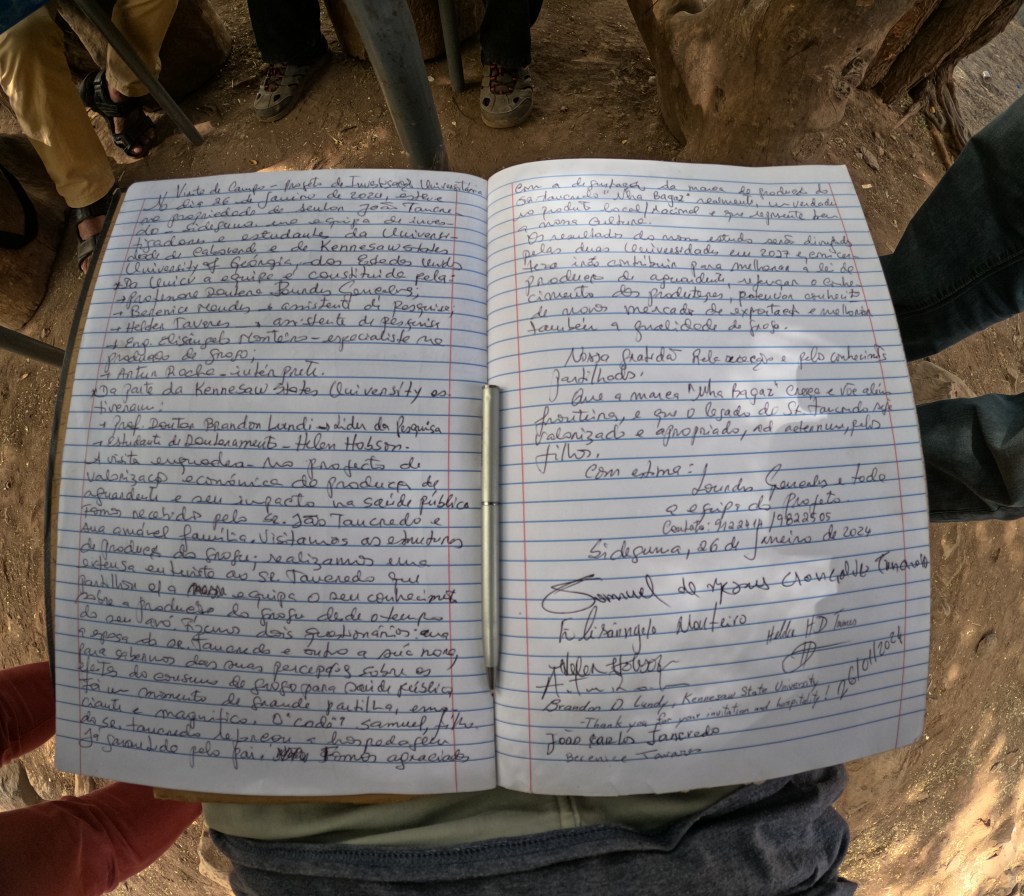 Visita de Campo - Projeto de Investigação Universitária
No dia 26 de Janeiro de 2024, esteve
na propriedade do senhor João Tancre-
do Sideguma uma equipa de inves-
tigadores e estudante da Universi-
dade de Cabo verde e de Kennesaw states
University of Geórgia, dos Estados Unidos
Da Unicv a equipe é constituida pela:
→ Professora Doutora Lourdes Gonçalves,
→ Berenice Mendes → assistente de pesquisa;
→ Helder Tavares → assistente de pesquisa
→ Eng. Elisângelo Monteiro - especialista na
produção de grogu;
→ Artur Rocha - intérprete.
Da parte da Kennesaw States University es
tiveram:
→ Prof. Doutor Brandon Lundi → Líder da Pesquisa
→ estudante de Doutoramento - Helen Hobson.
A visita enquadra-se no projecto de
valorização económica da produção de
aguardente e seu impacto na saúde pública
Fomos recebidos pelo Sr. João Tancredo e
sua amável família. Visitamos as estruturas
de produção do grogu; realizamos uma
extensa entrevista ao Sr. Tancredo que
partilhou c/ a equipa o seu conhecimento
sobre a produção do grogu desde o tempo
do seu avô. Fizemos dois questionários: a
a esposa do Sr Tancredo e outro a sua nora,
para sabermos das suas percepções sobre os
efeitos do consumo de grogo para saúde pública
Foi um momento de grande partilha, emo
ciante e magnífico. O "codé" Samuel, filho
do sr. Tancredo reforçou a hospedagem
já garantido pelo pai. Fomos agraciados
com a degustação da marca do produto do
Sr. Tancredo "Nha Bagaz" realmente, um verdade
iro produto local/nacional e que representa bem
a nossa cultura.
Os resultados do nosso estudo serão divulgados
pelas duas Universidades em 2027 e
irão contribuir para melhorar a lei de
produção de aguardente, reforçar o conhe
cimento dos produtores, potenciar
de novos mercados de exportação e melhorar
também a qualidade do grogu.
Nossa gratidão pela receção e pelo conhecimento
partilhados.
Que a marca "Nha Bagaz" cresça e vôe além
fronteira, e que o legado do Sr. Tancredo seja
valorizado e apropriado, ad aeternum, pelos
filhos.
Com estima:
Lourdes Gonçalves e toda
a equipa do Projeto
Sideguma, 26 de Janeiro de 2024
Samuel de Jesus Gonçalves Tancredo
Elisângelo Monteiro
Helder H D Tavares
Helen Hobson
Brandon D. Lundy, Kennesaw State University 26/01/2024
- Thank you for your invitation and hospitality!
João Carlos Tancredo
Berenice Tavares